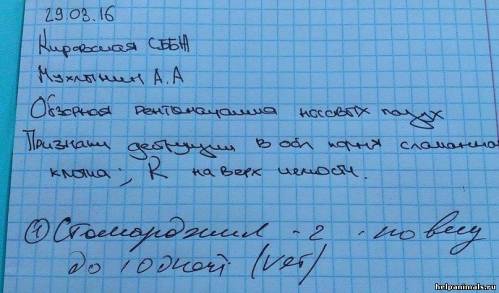 29.03.16
Кировская СББЖ
Мухлынин А.А
Обзорная рентгенограмма носовых пазух
Признаки деструкции в обл корня сломанного
клыка; R на верх челюсти.
① Стоморджил - 2 - по весу
до 10 дней (vet)
helpanimals.ru